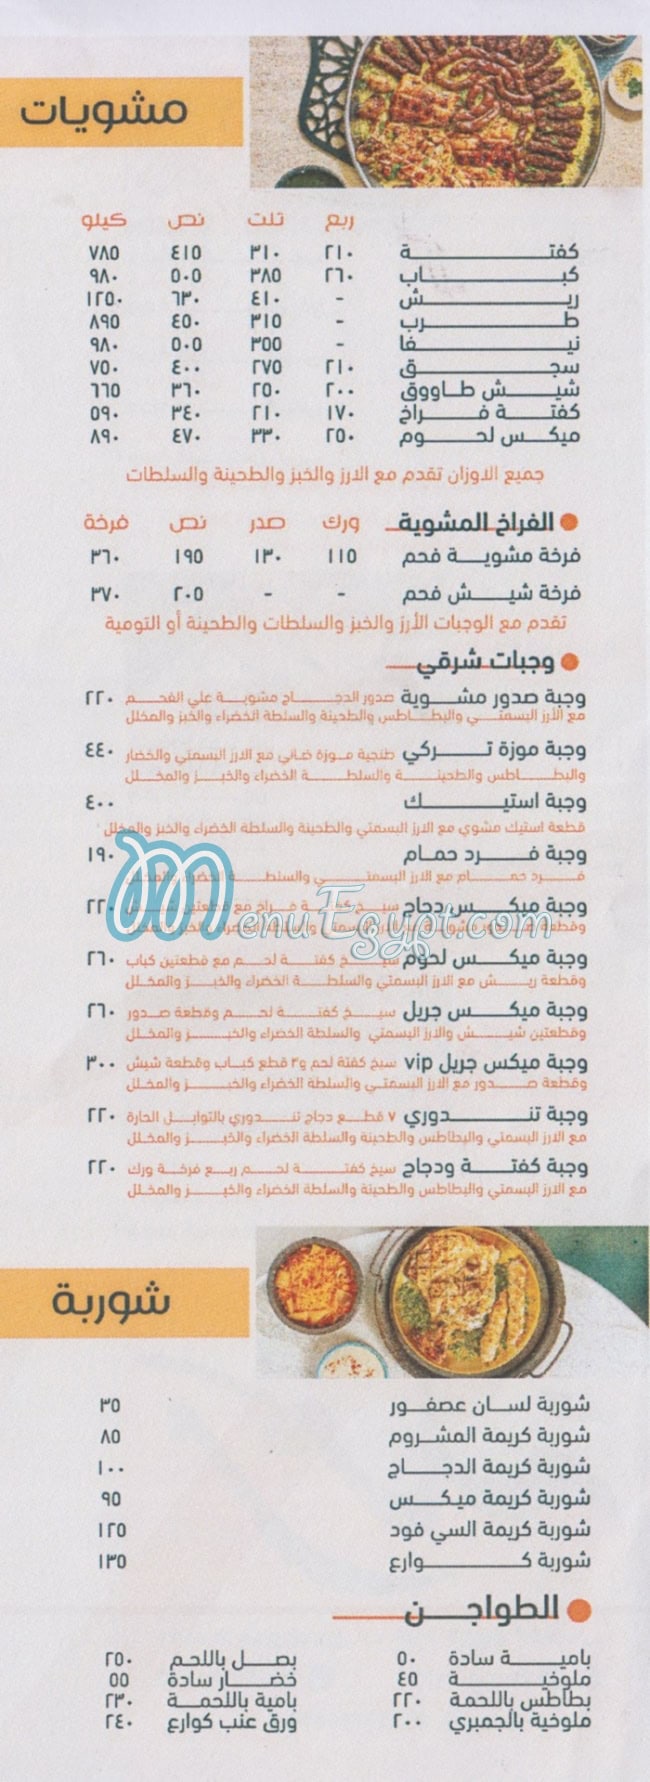 مشويات
ربع ثلث نص كيلو
كفتة ٢١٠ ٣١٠ ٤١٥ ٧٨٥
كباب ٢٦٠ ٣٨٥ ٥٠٥ ٩٨٠
ريش - ٤١٠ ٦٣٠ ١٢٥٠
طرب - ٣١٥ ٤٥٠ ٨٩٥
نيفا - ٣٥٥ ٥٠٥ ٩٨٠
سجق ٢١٠ ٢٧٥ ٤٠٠ ٧٥٠
شيش طاووق ٢٠٠ ٢٥٠ ٣٦٠ ٦٦٥
كفتة فراخ ١٧٠ ٢١٠ ٣٤٠ ٥٩٠
ميكس لحوم ٢٥٠ ٣٣٠ ٤٧٠ ٨٩٠
جميع الاوزان تقدم مع الارز والخبز والطحينة والسلطات
الفراخ المشوية ورك صدر نص فرخة
فرخة مشوية فحم ١١٥ ١٣٠ ١٩٥ ٣٦٠
فرخة شيش فحم - - ٢٠٥ ٣٧٠
تقدم مع الوجبات الأرز والخبز والسلطات والطحينة أو التومية
وجبات شرقي
وجبة صدور مشوية صدور الدجاج مشوية علي الفحم ٢٢٠
مع الأرز البسمتي والبطاطس والطحينة والسلطة الخضراء والخبز والمخلل
وجبة موزة تركي طنجية موزة ضاني مع الارز البسمتي والخضار ٤٤٠
والبطاطس والطحينة والسلطة الخضراء والخبز والمخلل
وجبة استيك ٤٠٠
قطعة استيك مشوي مع الارز البسمتي والطحينة والسلطة الخضراء والخبز والمخلل
وجبة فرد حمام ١٩٠
فرد حمام مع الارز البسمتي والسلطة الخضراء والخبز والمخلل
وجبة ميكس دجاج سيخ كفتة فراخ مع قطعتين شيش ٢٢٠
وقطعة صدور مشوية مع الارز البسمتي والسلطة الخضراء والخبز والمخلل
MenuEgypt.com
وجبة ميكس لحوم سيخ كفتة لحم مع قطعتين كباب ٢٦٠
وقطعة ريش مع الارز البسمتي والسلطة الخضراء والخبز والمخلل
وجبة ميكس جريل سيخ كفتة لحم وقطعة صدور ٢٦٠
وقطعتين شيش والارز البسمتي والسلطة الخضراء والخبز والمخلل
وجبة ميكس جريل vip سيخ كفتة لحم و٣ قطع كباب وقطعة شيش ٣٠٠
وقطعة صدور مع الارز البسمتي والسلطة الخضراء والخبز والمخلل
وجبة تندوري ٧ قطع دجاج تندوري بالتوابل الحارة ٢٢٠
مع الارز البسمتي والبطاطس والطحينة والسلطة الخضراء والخبز والمخلل
وجبة كفتة ودجاج سيخ كفتة لحم ربع فرخة ورك ٢٢٠
مع الارز البسمتي والبطاطس والطحينة والسلطة الخضراء والخبز والمخلل
شوربة
شوربة لسان عصفور ٣٥
شوربة كريمة المشروم ٨٥
شوربة كريمة الدجاج ١٠٠
شوربة كريمة ميكس ٩٥
شوربة كريمة السي فود ١٢٥
شوربة كوارع ١٣٥
الطواجن
بامية سادة ٥٠ بصل باللحم ٢٥٠
ملوخية ٤٥ خضار سادة ٥٥
بطاطس باللحمة ٢٢٠ بامية باللحمة ٢٣٠
ملوخية بالجمبري ٢٠٠ ورق عنب كوارع ٢٤٠